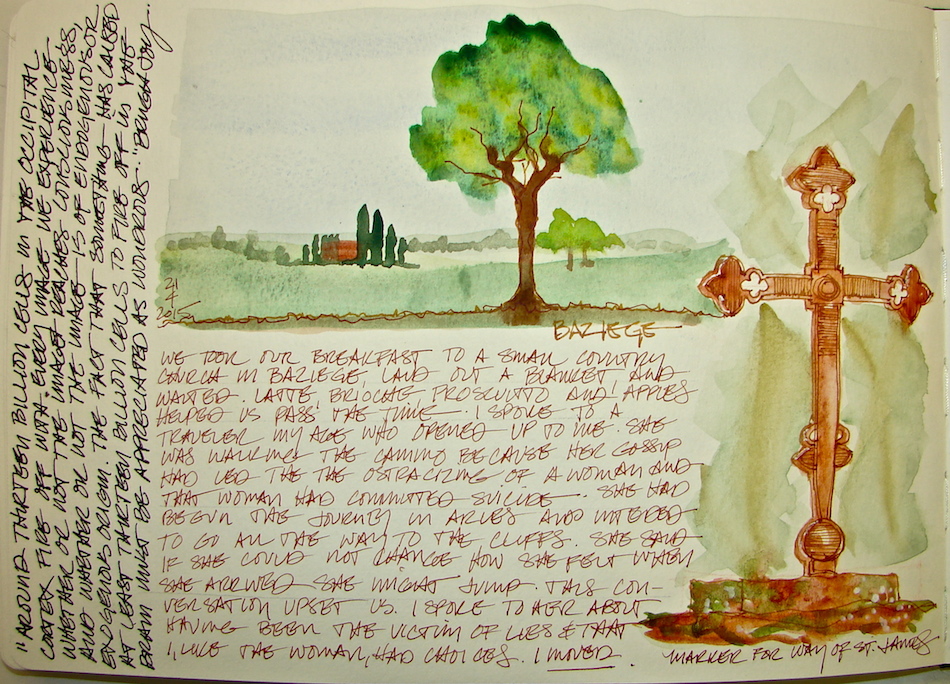 "AROUND THIRTEEN BILLION CELLS IN THE OCCIPITAL
CORTEX FIRE OFF WITH EVERY IMAGE WE EXPERIENCE.
WHETHER OR NOT THE IMAGE REACHES CONSCIOUSNESS,
AND WHETHER OR NOT THE IMAGE IS OF ENDOGENOUS OR
EXOGENOUS ORIGIN. THE FACT THAT SOMETHING HAS CAUSED
AT LEAST THIRTEEN BILLION CELLS TO FIRE OFF IN THE
BRAIN MUST BE APPRECIATED AS WONDROUS." BENCHA JOY.
21
7
2015
BAZIEGE
WE TOOK OUR BREAKFAST TO A SMALL COUNTRY
CHURCH IN BAZIEGE, LAID OUT A BLANKET AND
WAITED. LATTE, BRIOCHE, PROSCIUTTO AND APPLES
HELPED US PASS THE TIME. I SPOKE TO A
TRAVELER MY AGE WHO OPENED UP TO ME. SHE
WAS WALKING THE CAMINO BECAUSE HER GOSSIP
HAD LED THE THE OSTRACIZING OF A WOMAN AND
THAT WOMAN HAD COMMITTED SUICIDE. SHE HAD
BEGUN THE JOURNEY IN ARLES AND INTENDED
TO GO ALL THE WAY TO THE CLIFFS. SHE SAID
IF SHE COULD NOT CHANGE HOW SHE FELT WHEN
SHE ARRIVED SHE MIGHT JUMP. THIS CON-
VERSATION UPSET US. I SPOKE TO HER ABOUT
HAVING BEEN THE VICTIM OF LIES & THAT
I, LIKE THE WOMAN, HAD CHOICES. I MOVED.
MARKER FOR WAY OF ST. JAMES